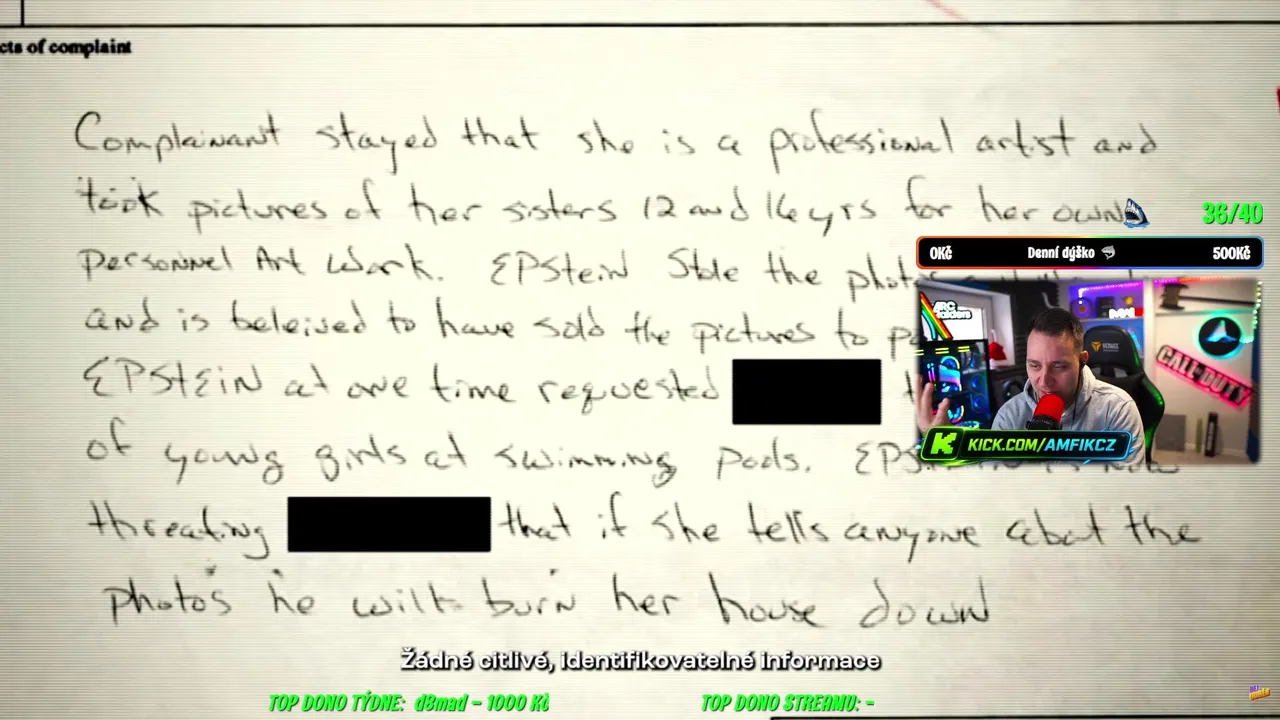 cts of complaint
Complainant stayed that she is a professional artist and
took pictures of her sisters 12 and 16 yrs for her own
36/40
personnel Art Work. EPStein Stole the photos
0Kč Denní dýško 500Kč
and is beleived to have sold the pictures to
EPStEiN at one time requested
of young girls at swimming pools.
KICK.COM/AMFIKCZ
CALL OF DUTY
threating that if she tells anyone abot the
photos he will burn her house down
Žádné citlivé, identifikovatelné informace
TOP DONO TÝDNE: d8mad - 1000 Kč TOP DONO STREAMU: -